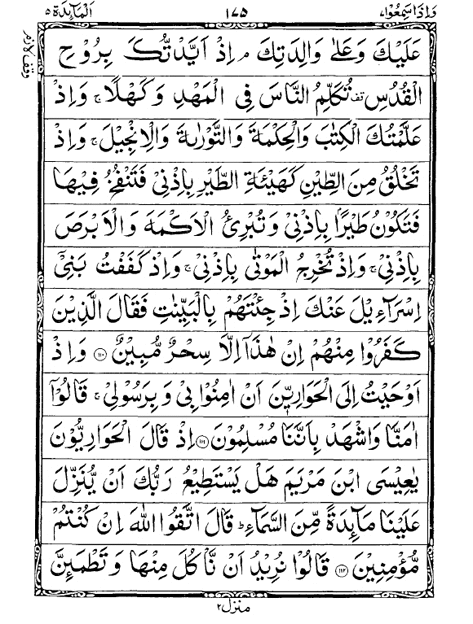 وَاِذَاسَمِعُوْا ٧ ١٧٥ اَلْمَآئِدَة ٥
عَلَيْكَ وَعَلٰى وَالِدَتِكَ ۘ اِذْ اَيَّدْتُّكَ بِرُوْحِ
الْقُدُسِ ۫ تُكَلِّمُ النَّاسَ فِى الْمَهْدِ وَكَهْلًا ۚ وَاِذْ
عَلَّمْتُكَ الْكِتٰبَ وَالْحِكْمَةَ وَالتَّوْرٰىةَ وَالْاِنْجِيْلَ ۚ وَاِذْ
تَخْلُقُ مِنَ الطِّيْنِ كَهَيْئَةِ الطَّيْرِ بِاِذْنِىْ فَتَنْفُخُ فِيْهَا
فَتَكُوْنُ طَيْرًۢا بِاِذْنِىْ وَتُبْرِئُ الْاَكْمَهَ وَالْاَبْرَصَ
بِاِذْنِىْ ۚ وَاِذْ تُخْرِجُ الْمَوْتٰى بِاِذْنِىْ ۚ وَاِذْ كَفَفْتُ بَنِىْۤ
اِسْرَآءِيْلَ عَنْكَ اِذْ جِئْتَهُمْ بِالْبَيِّنٰتِ فَقَالَ الَّذِيْنَ
كَفَرُوْا مِنْهُمْ اِنْ هٰذَاۤ اِلَّا سِحْرٌ مُّبِيْنٌ ﴿١١٠﴾ وَاِذْ
اَوْحَيْتُ اِلَى الْحَوَارِيّٖنَ اَنْ اٰمِنُوْا بِىْ وَبِرَسُوْلِىْ ۚ قَالُوْۤا
اٰمَنَّا وَاشْهَدْ بِاَنَّنَا مُسْلِمُوْنَ ﴿١١١﴾ اِذْ قَالَ الْحَوَارِيُّوْنَ
يٰعِيْسَى ابْنَ مَرْيَمَ هَلْ يَسْتَطِيْعُ رَبُّكَ اَنْ يُّنَزِّلَ
عَلَيْنَا مَآئِدَةً مِّنَ السَّمَآءِ ؕ قَالَ اتَّقُوا اللّٰهَ اِنْ كُنْتُمْ
مُّؤْمِنِيْنَ ﴿١١٢﴾ قَالُوْا نُرِيْدُ اَنْ نَّاْكُلَ مِنْهَا وَتَطْمَئِنَّ
منزل ٢